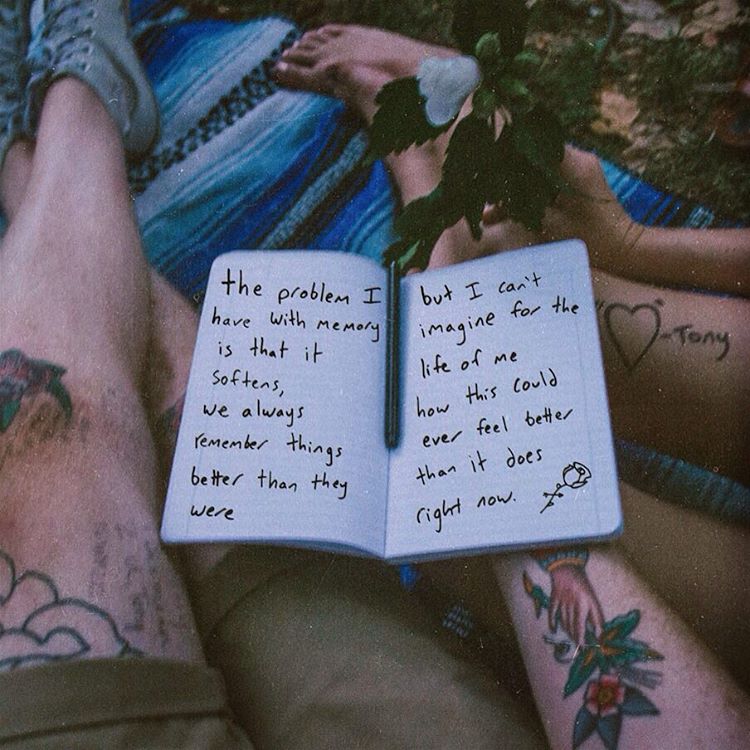 the problem I
have with memory
is that it
softens,
we always
remember things
better than they
were
but I can't
imagine for the
life of me
how this could
ever feel better
than it does
right now.
"♡" -Tony